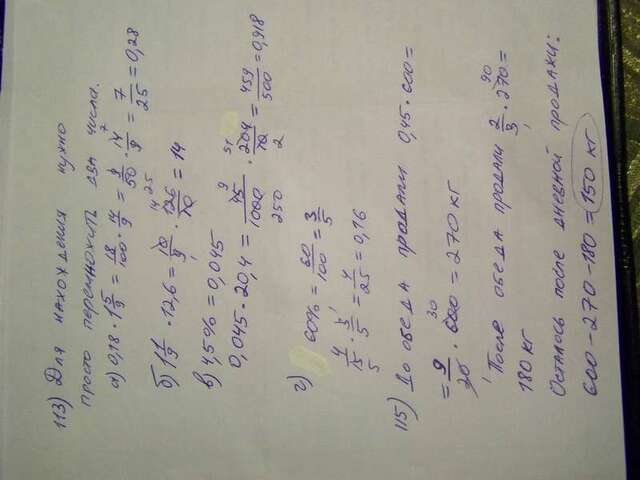 113) Для нахождения нужно
просто перемножить два числа.
а) 0,18 · 1 5/9 = 18/100 · 14/9 = 9/50 · 14/9 = 7/25 = 0,28
б) 1 1/9 · 12,6 = 10/9 · 126/10 = 14
в) 4,5% = 0,045
0,045 · 20,4 = 45/1000 · 204/10 = 459/500 = 0,918
г) 60% = 60/100 = 3/5
4/15 · 3/5 = 4/25 = 0,16
115) До обеда продали 0,45 · 600 =
= 9/20 · 600 = 270 кг
После обеда продали 2/3 · 270 =
180 кг
Осталось после дневной продажи:
600 - 270 - 180 = 150 кг